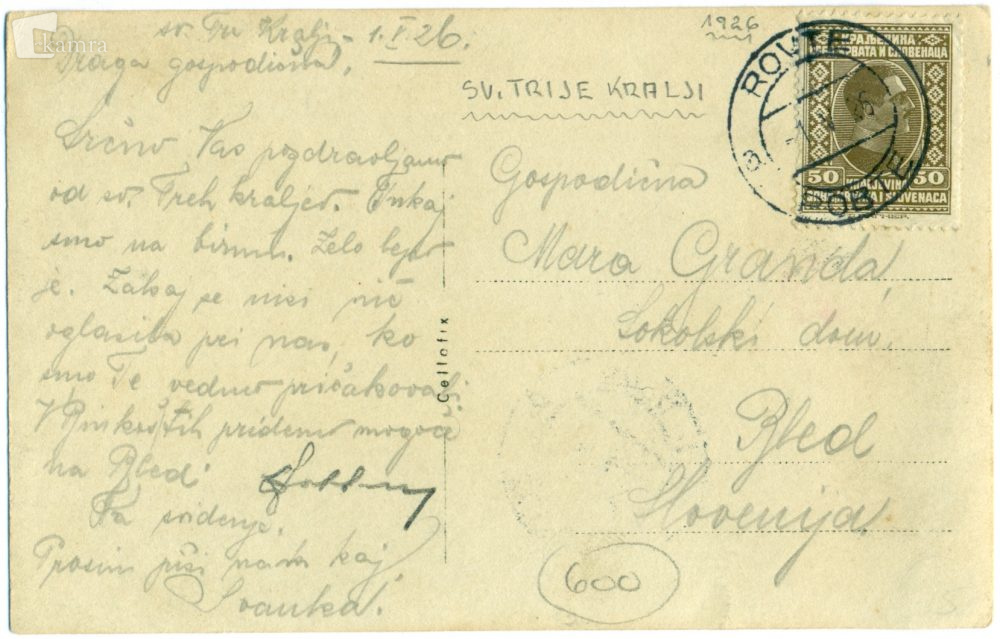 kamra
sv. Tri Kralji - 1. V. 26.
Draga gospodična,
Srčno Vas pozdravljamo
od sv. Treh kraljev. Tukaj
smo na birmi. Zelo lepo
je. Zakaj se nisi nič
oglasila pri nas, ko
smo Te vedno pričakovali
V Binkoštih pridemo mogoče
na Bled.
Na svidenje.
Prosim piši nam kaj
Ivanka.
Cellofix
1926
SV. TRIJE KRALJI
КРАЉЕВИНА
СРБА ХРВАТА И СЛОВЕНАЦА
50 KRALJEVINA 50
SRBA HRVATA I SLOVENACA
ROVTE
a
Gospodična
Mara Granda,
Sokolski dom,
Bled
Slovenija
600